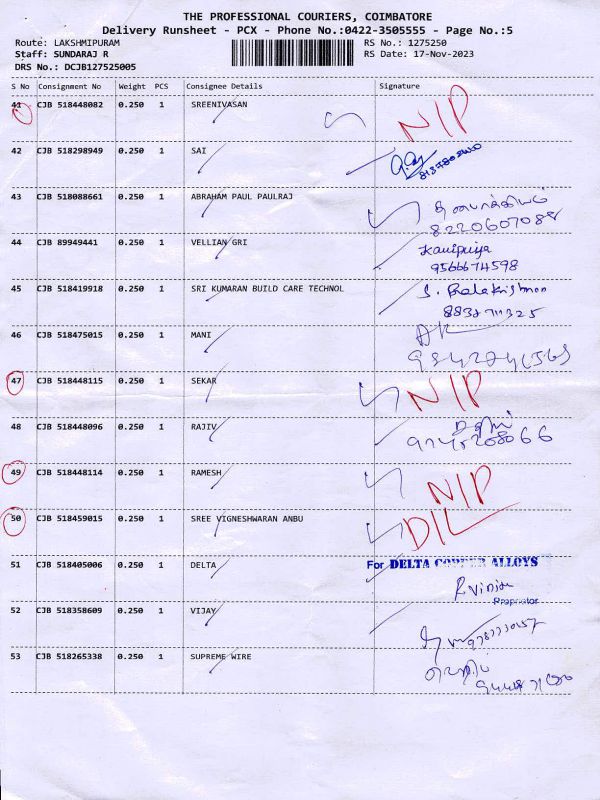 THE PROFESSIONAL COURIERS, COIMBATORE
Delivery Runsheet - PCX - Phone No.:0422-3505555 - Page No.:5
Route: LAKSHMIPURAM RS No.: 1275250
Staff: SUNDARAJ R RS Date: 17-Nov-2023
DRS No.: DCJB127525005
S No Consignment No Weight PCS Consignee Details Signature
41 CJB 518448082 0.250 1 SREENIVASAN N/P
42 CJB 518298949 0.250 1 SAI
43 CJB 518088661 0.250 1 ABRAHAM PAUL PAULRAJ
8220607088
44 CJB 89949441 0.250 1 VELLIAN GRI
9566674598
45 CJB 518419918 0.250 1 SRI KUMARAN BUILD CARE TECHNOL S. Balakrishnan
46 CJB 518475015 0.250 1 MANI
47 CJB 518448115 0.250 1 SEKAR N/P
48 CJB 518448096 0.250 1 RAJIV
49 CJB 518448114 0.250 1 RAMESH N/P
50 CJB 518459015 0.250 1 SREE VIGNESHWARAN ANBU D/L
51 CJB 518405006 0.250 1 DELTA For DELTA COPPER ALLOYS
Proprietor
52 CJB 518358609 0.250 1 VIJAY
53 CJB 518265338 0.250 1 SUPREME WIRE